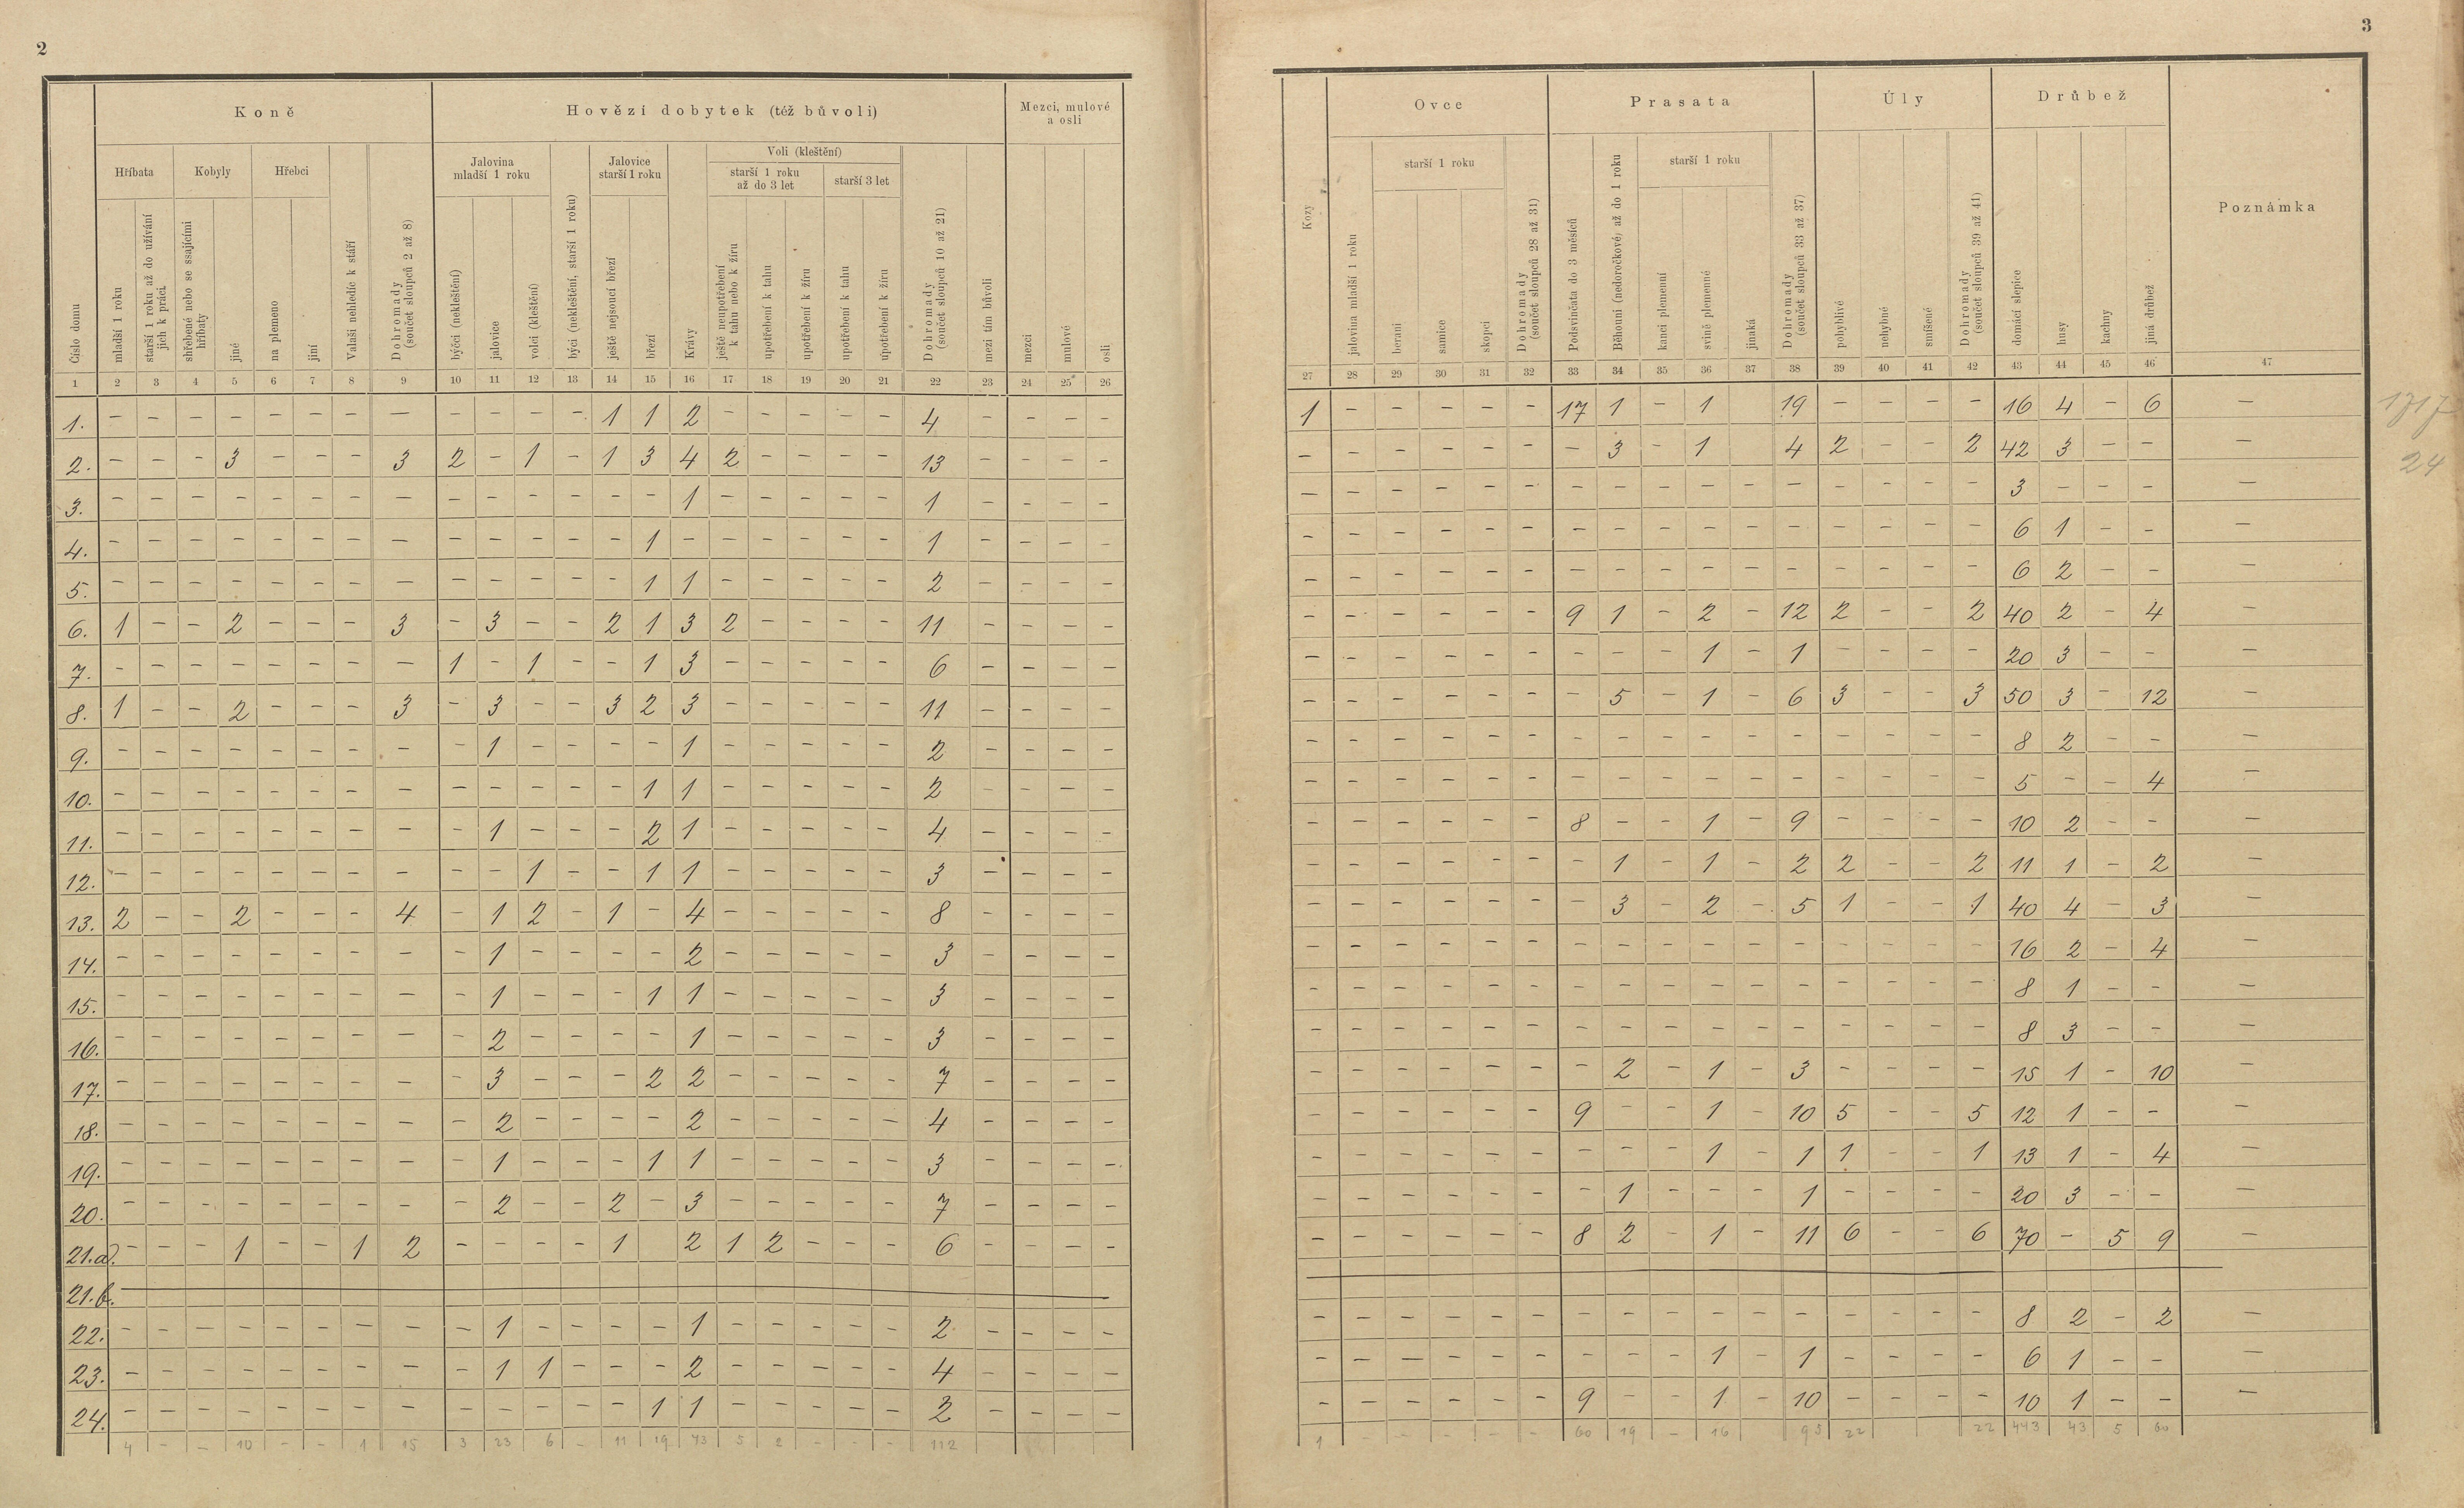 2
Koně
Hovězí dobytek (též bůvoli)
Mezci, mulové
a osli
Hříbata
Kobyly
Hřebci
Jalovina
mladší 1 roku
Jalovice
starší 1 roku
Voli (kleštění)
starší 1 roku
až do 3 let
starší 3 let
Číslo domu
mladší 1 roku
starší 1 roku až do užívání
jich k práci
shřebené nebo se ssajícími
hříbaty
jiné
na plemeno
jiní
Valaši nehledíc k stáří
Dohromady
(součet sloupců 2 až 8)
býčci (nekleštění)
jalovice
volci (kleštění)
býci (nekleštění, starší 1 roku)
ještě nejsoucí březí
březí
Krávy
ještě neupotřebení
k tahu nebo k žíru
upotřebení k tahu
upotřebení k žíru
upotřebení k tahu
upotřebení k žíru
Dohromady
(součet sloupců 10 až 21)
mezi tím bůvoli
mezci
mulové
osli
1 2 3 4 5 6 7 8 9 10 11 12 13 14 15 16 17 18 19 20 21 22 23 24 25 26
1. – – – – – – – – – – – – 1 1 2 – – – – – 4 – – – –
2. – – – 3 – – – 3 2 – 1 – 1 3 4 2 – – – – 13 – – – –
3. – – – – – – – – – – – – – – 1 – – – – – 1 – – – –
4. – – – – – – – – – – – – – 1 – – – – – – 1 – – – –
5. – – – – – – – – – – – – – 1 1 – – – – – 2 – – – –
6. 1 – – 2 – – – 3 – 3 – – 2 1 3 2 – – – – 11 – – – –
7. – – – – – – – – 1 – 1 – – 1 3 – – – – – 6 – – – –
8. 1 – – 2 – – – 3 – 3 – – 3 2 3 – – – – – 11 – – – –
9. – – – – – – – – – 1 – – – – 1 – – – – – 2 – – – –
10. – – – – – – – – – – – – – 1 1 – – – – – 2 – – – –
11. – – – – – – – – – 1 – – – 2 1 – – – – – 4 – – – –
12. – – – – – – – – – – 1 – – 1 1 – – – – – 3 – – – –
13. 2 – – 2 – – – 4 – 1 2 – 1 – 4 – – – – – 8 – – – –
14. – – – – – – – – – 1 – – – – 2 – – – – – 3 – – – –
15. – – – – – – – – – 1 – – – 1 1 – – – – – 3 – – – –
16. – – – – – – – – – 2 – – – – 1 – – – – – 3 – – – –
17. – – – – – – – – – 3 – – – 2 2 – – – – – 7 – – – –
18. – – – – – – – – – 2 – – – – 2 – – – – – 4 – – – –
19. – – – – – – – – – 1 – – – 1 1 – – – – – 3 – – – –
20. – – – – – – – – – 2 – – 2 – 3 – – – – – 7 – – – –
21.a). – – – 1 – – 1 2 – – – – 1 2 1 2 – – – 6 – – – –
21.b.
22. – – – – – – – – – 1 – – – – 1 – – – – – 2 – – – –
23. – – – – – – – – – 1 1 – – – 2 – – – – – 4 – – – –
24. – – – – – – – – – – – – – 1 1 – – – – – 2 – – – –
4 – – 10 – – 1 15 3 23 6 – 11 19 43 5 2 – – – 112
3
Ovce
Prasata
Úly
Drůbež
Poznámka
starší 1 roku
starší 1 roku
Kozy
jalovina mladší 1 roku
berani
samice
skopci
Dohromady
(součet sloupců 28 až 31)
Podsvinčata do 3 měsíců
Běhouni (nedoročkové) až do 1 roku
kanci plemenní
svině plemenné
jinaká
Dohromady
(součet sloupců 33 až 37)
pohyblivé
nehybné
smíšené
Dohromady
(součet sloupců 39 až 41)
domácí slepice
husy
kachny
jiná drůbež
27 28 29 30 31 32 33 34 35 36 37 38 39 40 41 42 43 44 45 46 47
1 – – – – – 17 1 – 1 19 – – – – 16 4 – 6 –
1717
– – – – – – – 3 – 1 4 2 – – 2 42 3 – – –
24
– – – – – – – – – – – – – – – – 3 – – – –
– – – – – – – – – – – – – – – – 6 1 – – –
– – – – – – – – – – – – – – – – 6 2 – – –
– – – – – – 9 1 – 2 – 12 2 – – 2 40 2 – 4 –
– – – – – – – – – 1 – 1 – – – – 20 3 – – –
– – – – – – – 5 – 1 – 6 3 – – 3 50 3 – 12 –
– – – – – – – – – – – – – – – – 8 2 – – –
– – – – – – – – – – – – – – – – 5 – – 4 –
– – – – – – 8 – – 1 – 9 – – – – 10 2 – – –
– – – – – – – 1 – 1 – 2 2 – – 2 11 1 – 2 –
– – – – – – – 3 – 2 – 5 1 – – 1 40 4 – 3 –
– – – – – – – – – – – – – – – – 16 2 – 4 –
– – – – – – – – – – – – – – – – 8 1 – – –
– – – – – – – – – – – – – – – – 8 3 – – –
– – – – – – – 2 – 1 – 3 – – – – 15 1 – 10 –
– – – – – – 9 – – 1 – 10 5 – – 5 12 1 – – –
– – – – – – – – – 1 – 1 1 – – 1 13 1 – 4 –
– – – – – – – 1 – – – 1 – – – – 20 3 – – –
– – – – – – 8 2 – 1 – 11 6 – – 6 70 – 5 9 –
– – – – – – – – – – – – – – – – 8 2 – 2 –
– – – – – – – – – 1 – 1 – – – – 6 1 – – –
– – – – – – 9 – – 1 – 10 – – – – 10 1 – – –
1 – – – – – 60 19 – 16 95 22 22 443 43 5 60